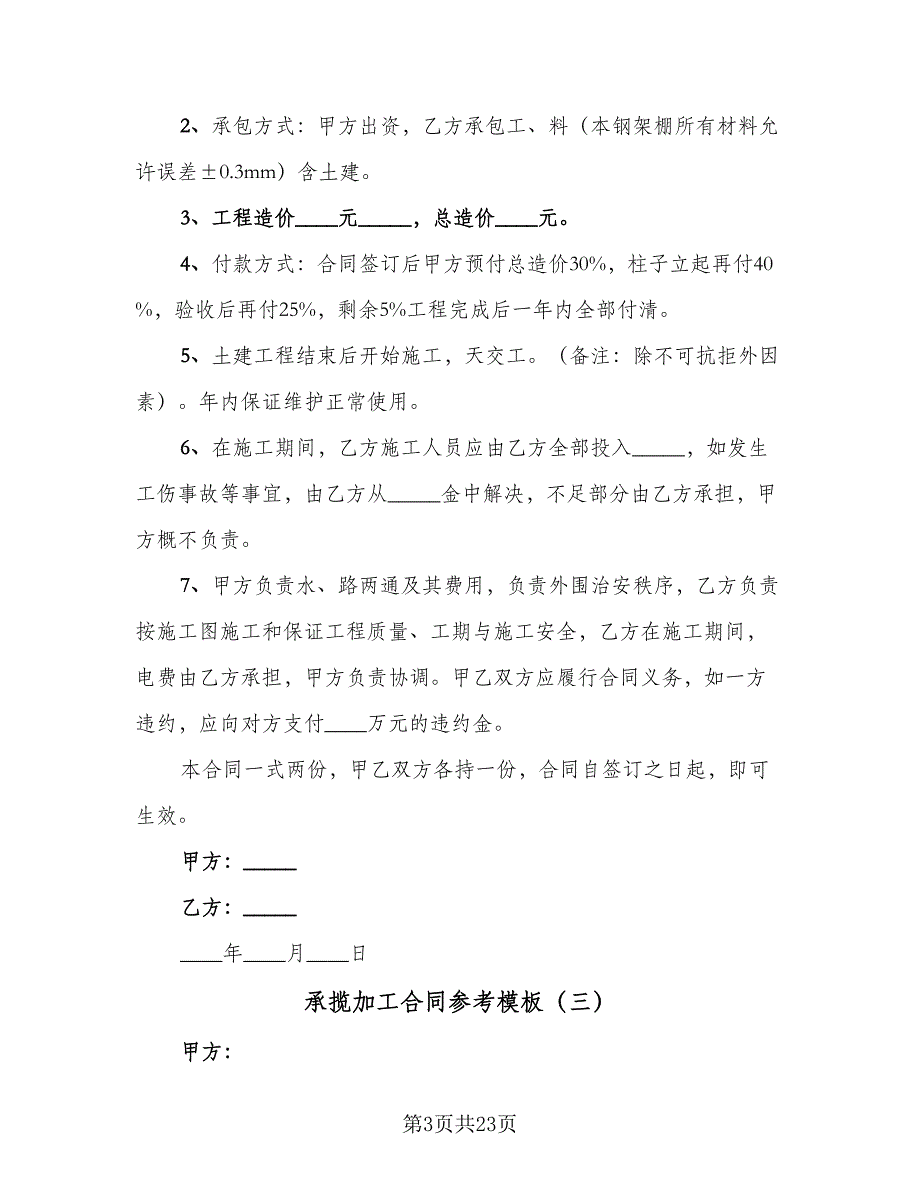 2、承包方式：甲方出资，乙方承包工、料（本钢架棚所有材料允
许误差±0.3mm）含土建。
3、工程造价____元_____，总造价____元。
4、付款方式：合同签订后甲方预付总造价30%，柱子立起再付40
%，验收后再付25%，剩余5%工程完成后一年内全部付清。
5、土建工程结束后开始施工，天交工。（备注：除不可抗拒外因
素）。年内保证维护正常使用。
6、在施工期间，乙方施工人员应由乙方全部投入_____，如发生
工伤事故等事宜，由乙方从_____金中解决，不足部分由乙方承担，甲
方概不负责。
7、甲方负责水、路两通及其费用，负责外围治安秩序，乙方负责
按施工图施工和保证工程质量、工期与施工安全，乙方在施工期间，
电费由乙方承担，甲方负责协调。甲乙双方应履行合同义务，如一方
违约，应向对方支付____万元的违约金。
本合同一式两份，甲乙双方各持一份，合同自签订之日起，即可
生效。
甲方：_____
乙方：_____
____年____月____日
承揽加工合同参考模板（三）
甲方：
第3页共23页